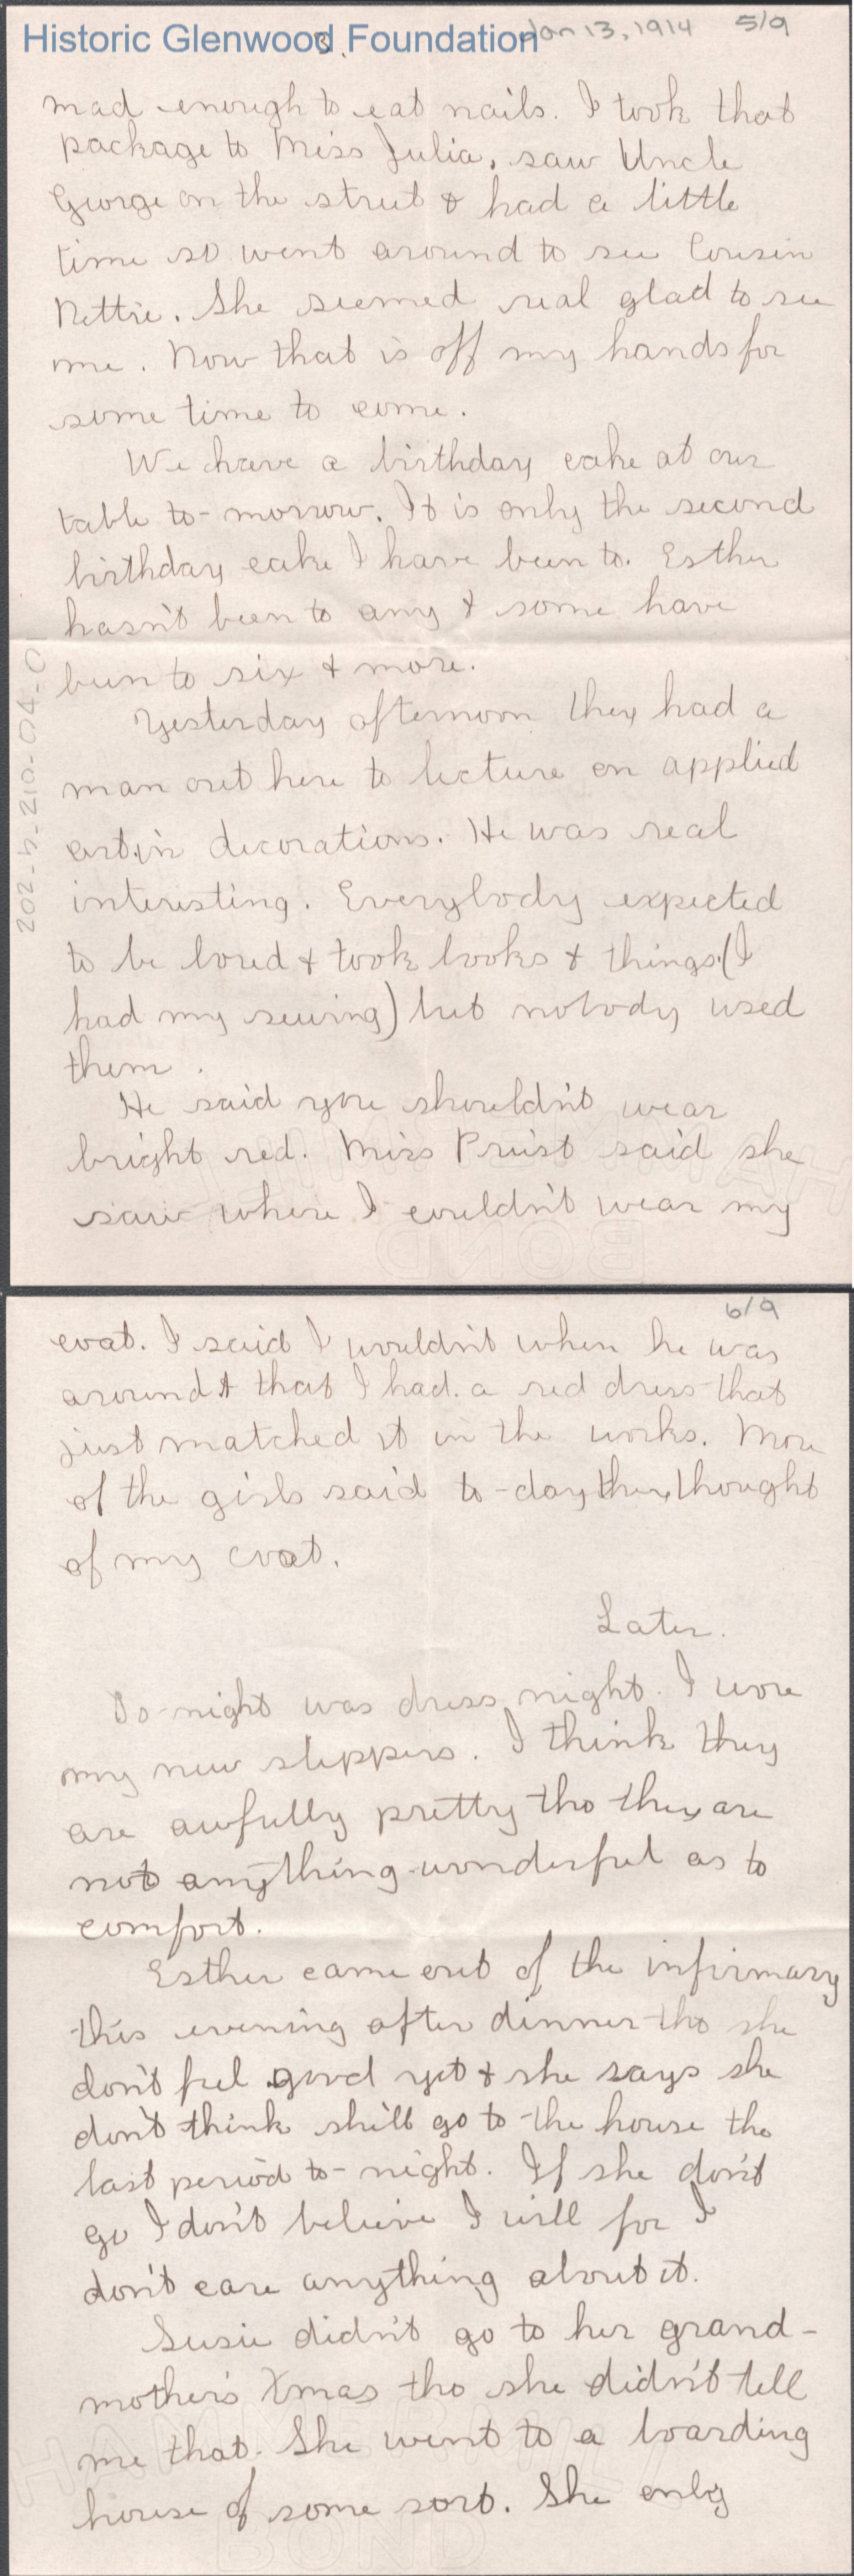 Historic Glenwood Foundation
3.
Jan 13, 1914 5/9
mad enough to eat nails. I took that
package to Miss Julia, saw Uncle
George on the street & had a little
time so went around to see Cousin
Nettie. She seemed real glad to see
me. Now that is off my hands for
some time to come.
We have a birthday cake at our
table to-morrow. It is only the second
birthday cake I have been to. Esther
hasn't been to any & some have
been to six & more.
Yesterday afternoon they had a
man out here to lecture on applied
art in decorations. He was real
interesting. Everybody expected
to be bored & took books & things (I
had my sewing) but nobody used
them.
He said you shouldn't wear
bright red. Miss Priest said she
saw where I couldn't wear my
202-b-210-04-01
HAMMERMILL
BOND
6/9
coat. I said I wouldn't when he was
around & that I had a red dress that
just matched it in the works. More
of the girls said to-day they thought
of my coat.
Later.
To-night was dress night. I wore
my new slippers. I think they
are awfully pretty tho they are
not anything wonderful as to
comfort.
Esther came out of the infirmary
this evening after dinner tho she
don't feel good yet & she says she
don't think she'll go to the house the
last period to-night. If she don't
go I don't believe I will for I
don't care anything about it.
Susie didn't go to her grand-
mother's Xmas tho she didn't tell
me that. She went to a boarding
house of some sort. She only
HAMMERMILL
BOND